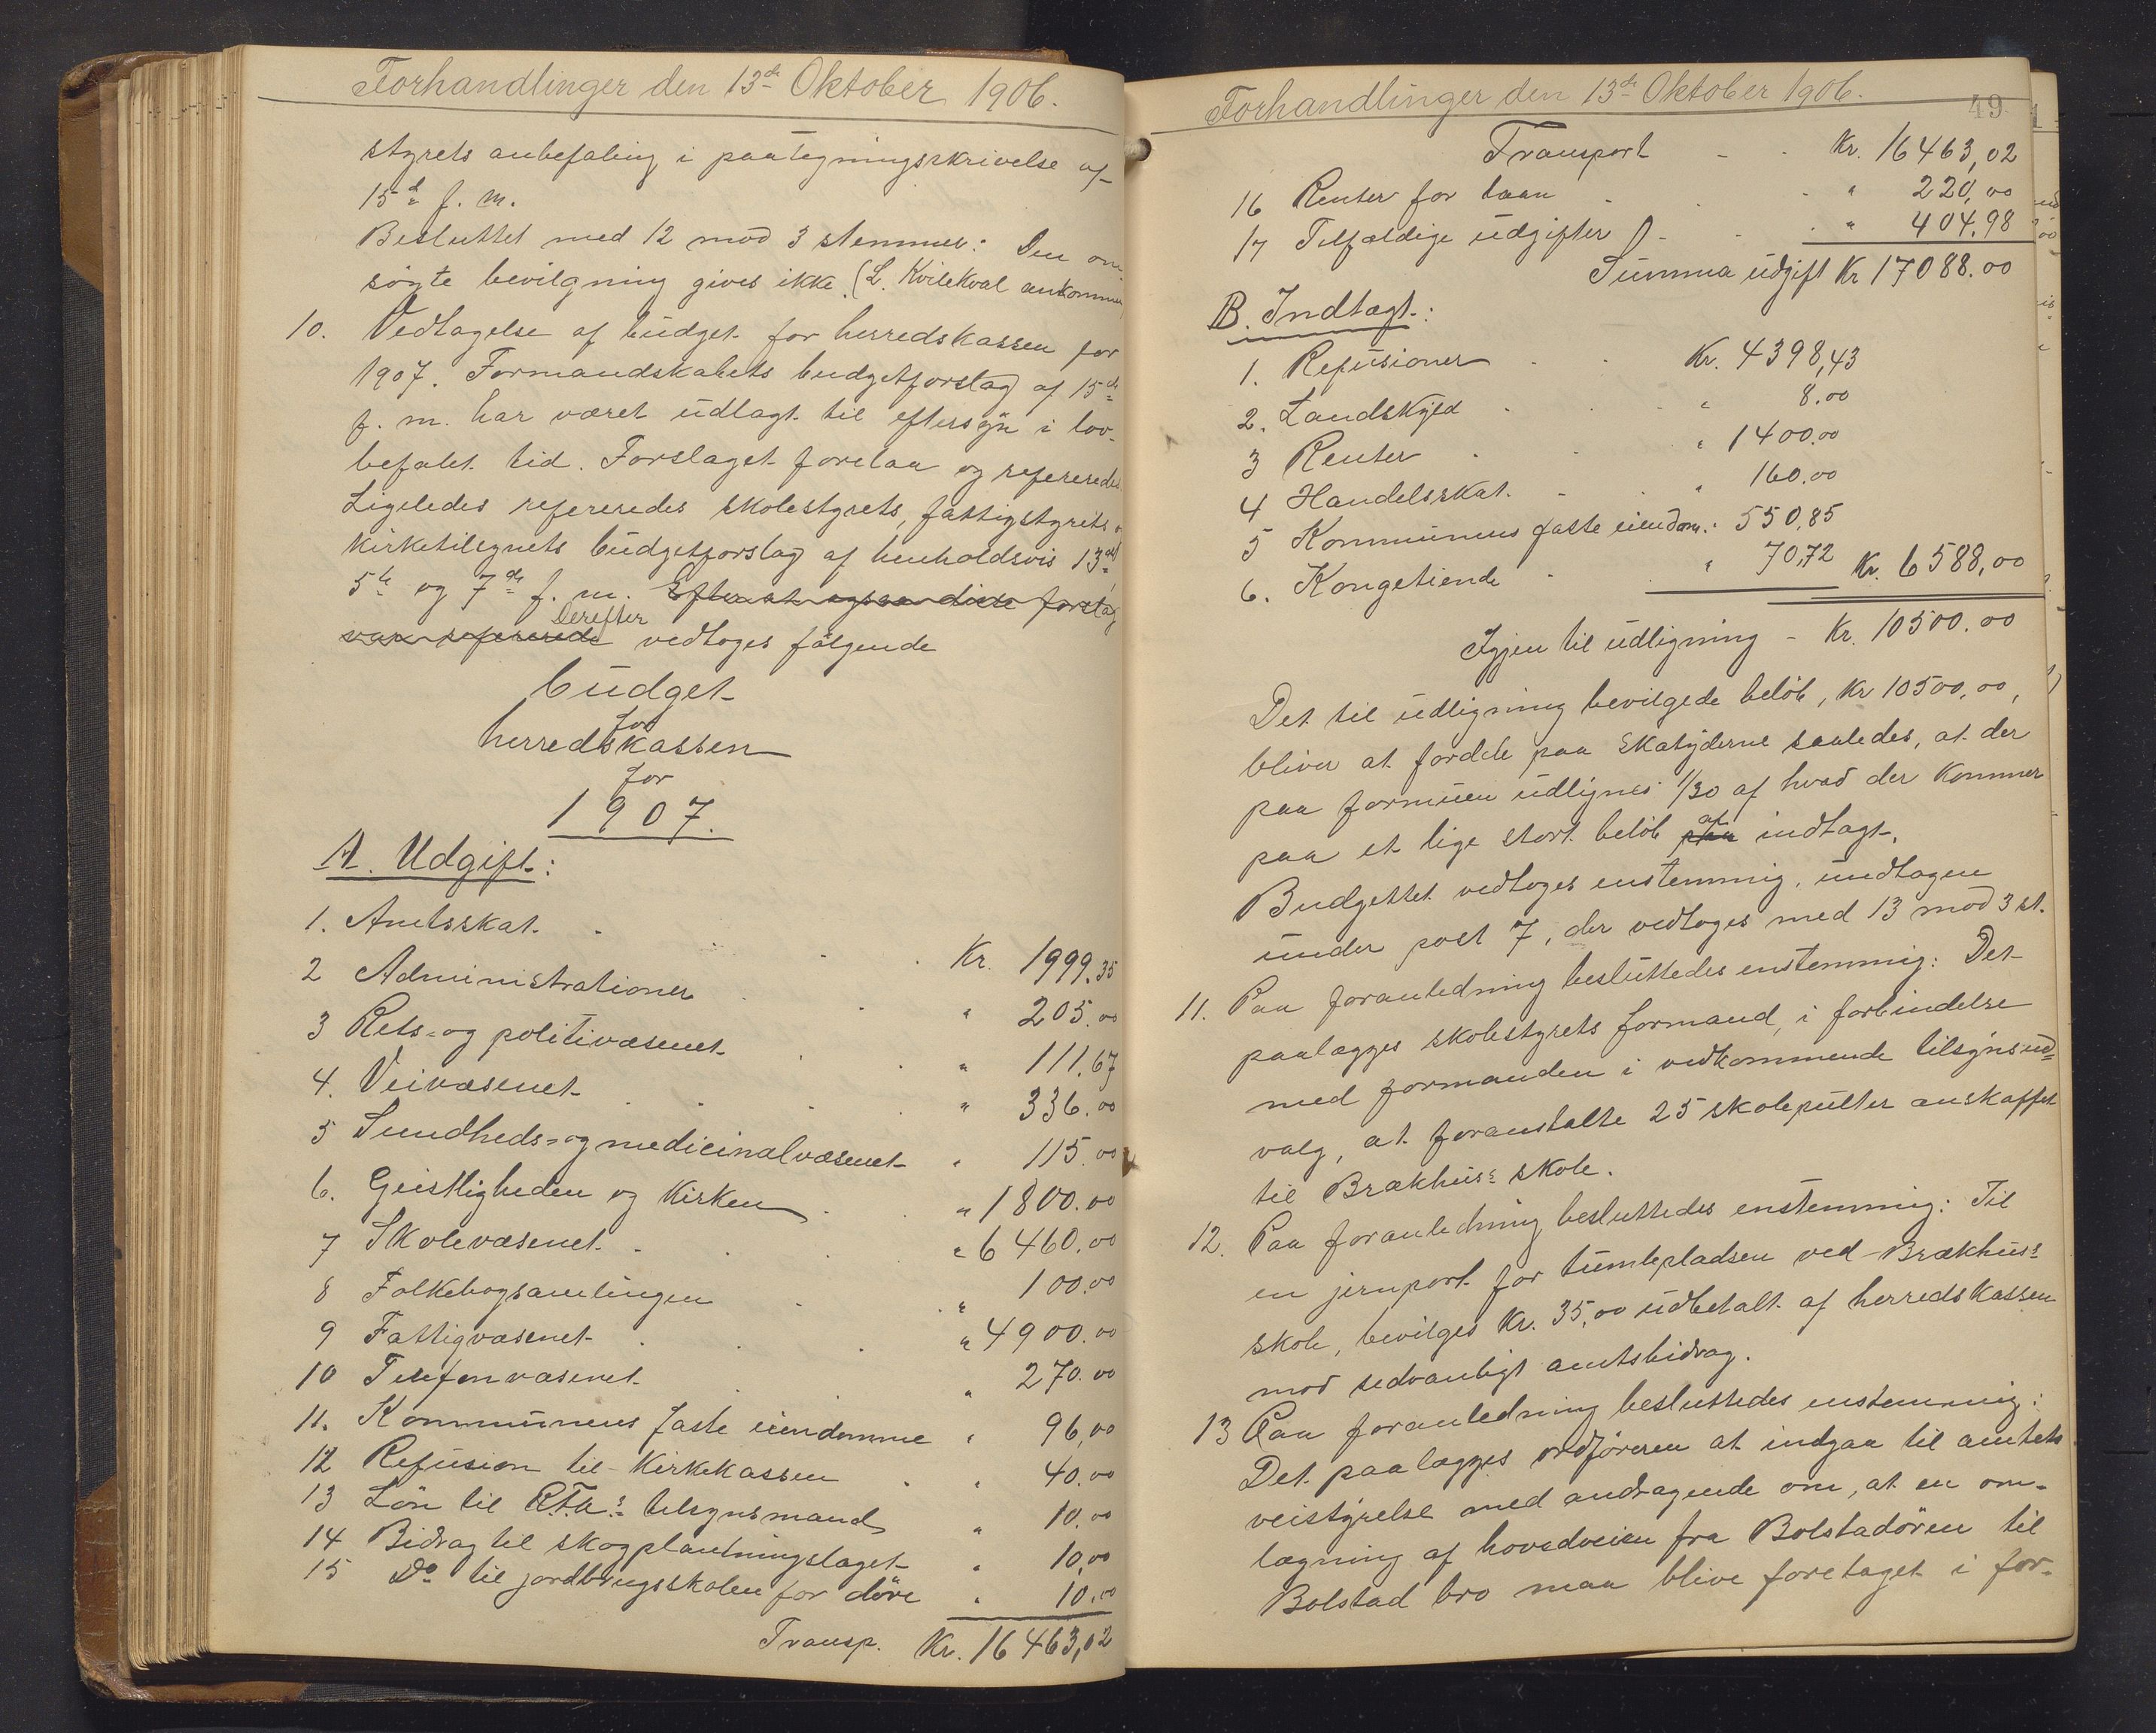 Forhandlinger den 13de Oktober 1906.
styrets anbefaling i paategningsskrivelse af
15de f. m.
Besluttet med 12 mod 3 stemmer: Den om-
søgte bevilgning gives ikke. (L. Kvilekval ankommer
10. Vedtagelse af budget for herredskassen for
1907. Formandskabets budgetforslag af 15de
f. m. har været udlagt til eftersyn i lov-
befalet tid. Forslaget forelaa og refereredes.
Ligeledes refereredes skolestyrets, fattigstyrets o
kirketilsynets budgetforslag af henholdsvis 13de,
5te og 7de f. m. Efter at ogsaa disse forslag
Derefter
var refererede vedtoges følgende
budget
for
herredskassen
for
1907.
A. Udgift:
1. Amtsskat. Kr. 1999.35
2 Administrationen " 205.00
3 Rets- og politivæsenet " 111.67
4. Veivæsenet " 336.00
5 Sundheds- og medicinalvæsenet " 115.00
6. Geistligheden og kirken " 1800.00
7 Skolevæsenet " 6460.00
8 Folkebogsamlingen " 100.00
9 Fattigvæsenet " 4900.00
10 Telefonvæsenet " 270.00
11. Kommunens faste eiendomme " 96,00
12 Refusion til kirkekassen " 40.00
13 Løn til R.T.A.s tilsynsmand " 10.00
14 Bidrag til skogplantningslaget " 10,00
15 Do til jordbrugsskolen for døve " 10.00
Transp. Kr. 16463,02
Forhandlinger den 13de Oktober 1906.
49
Transport - - Kr. 16463,02
16 Renter for laan " 220,00
17 Tilfældige udgifter " 404.98
Summa udgift Kr 17088.00
B. Indtægt:
1. Refusioner Kr. 4398,43
2. Landskyld " 8.00
3 Renter " 1400.00
4 Handelsskat " 160.00
5 Kommunens faste eiendom.: 550,85
6. Kongetiende " 70,72 Kr. 6588,00
Igjen til udligning - Kr. 10500.00
Det til udligning bevilgede beløb, Kr 10500,00,
bliver at fordele paa skatyderne saaledes, at der
paa formuen udlignes 1/30 af hvad der kommer
af
paa et lige stort beløb paa indtægt.
Budgettet vedtoges enstemmig, undtagen
under post 7, der vedtoges med 13 mod 3 st.
11. Paa foranledning besluttedes enstemmig: Det
paalægges skolestyrets formand, i forbindelse
med formanden i vedkommende tilsynsud-
valg, at foranstalte 25 skolepulter anskaffet
til Brækhus's skole.
12. Paa foranledning besluttedes enstemmig: Til
en jernport for tumlepladsen ved Brækhus's
skole, bevilges Kr. 35,00 udbetalt af herredskassen
mod sedvanligt amtsbidrag.
13 Paa foranledning besluttedes enstemmig:
Det paalægges ordføreren at indgaa til amtets
veistyrelse med andragende om, at en om-
lægning af hovedveien fra Bolstadøren til
Bolstad bro maa blive foretaget i for-